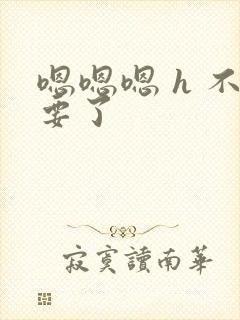 嗯嗯嗯 h 不
要了
寂寞讀南華